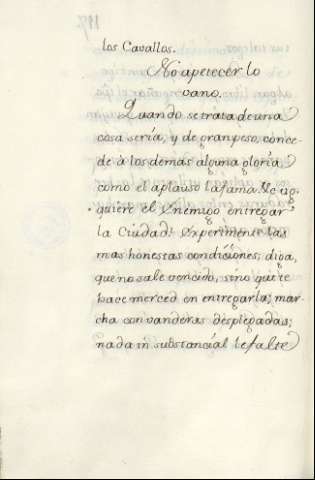 los Cavallos.
No apetecer lo
vano.
Quando se trata de una
cosa seria, y de gran peso, conce-
de à los demás alguna gloria,
como el aplauso la fama &c.
quiere el Enemigo entregar
la Ciudad? Experimente las
mas honestas condiciones; diga,
que no sale vencido, sino que te
hace merced en entregarla; mar-
cha con vanderas desplegadas;
nada in substancial le falte